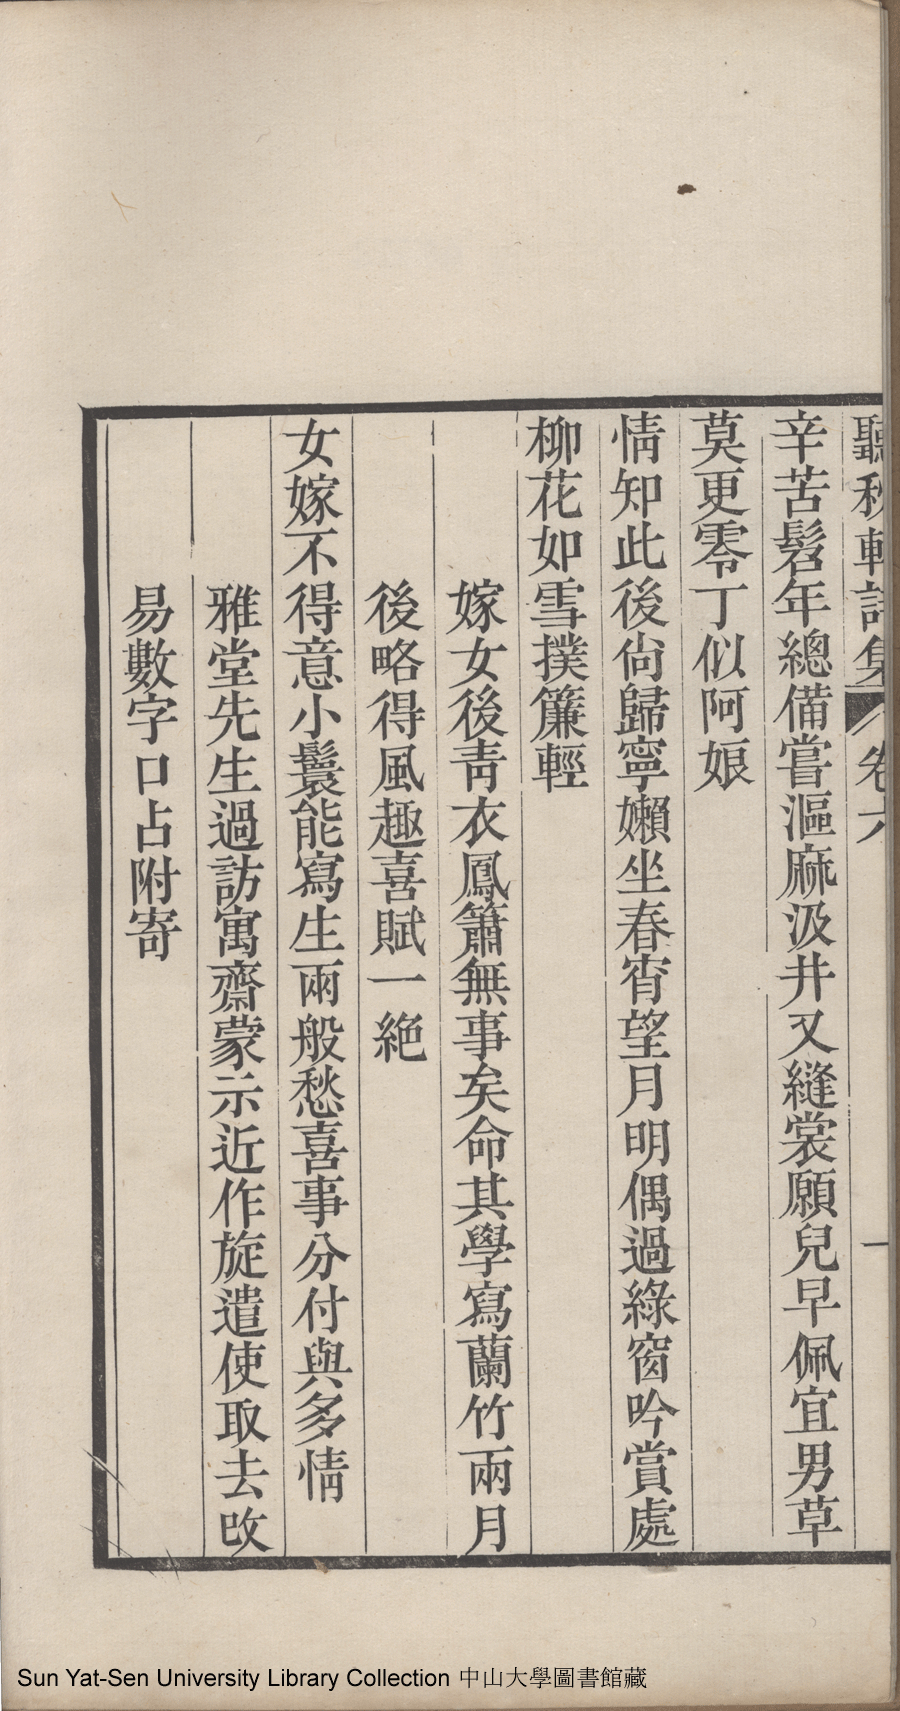 聽秋軒詩集 卷六 一
辛苦髫年總備嘗漚麻汲井又縫裳願兒早佩宜男草
莫更零丁似阿娘
情知此後尙歸寧嬾坐春宵望月明偶過綠窗吟賞處
柳花如雪撲簾輕
嫁女後靑衣鳳簫無事矣命其學寫蘭竹兩月
後略得風趣喜賦一絕
女嫁不得意小鬟能寫生兩般愁喜事分付與多情
雅堂先生過訪寓齋蒙示近作旋遣使取去改
易數字口占附寄
Sun Yat-Sen University Library Collection 中山大學圖書館藏